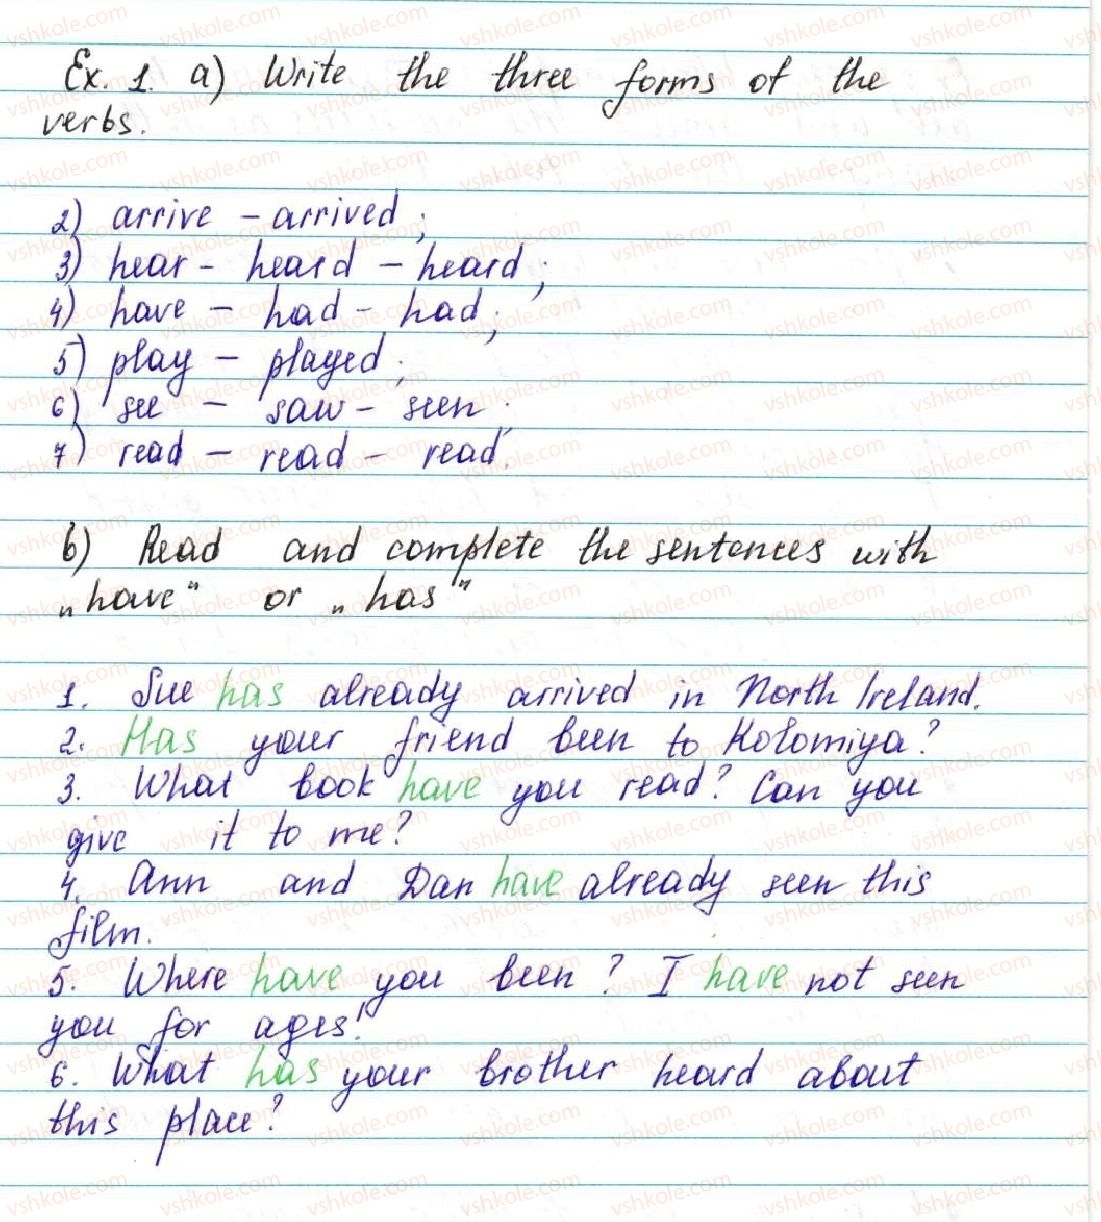 Ex. 1. a) Write the three forms of the
verbs.
2) arrive – arrived;
3) hear – heard – heard;
4) have – had – had;
5) play – played;
6) see – saw – seen;
7) read – read – read.
b) Read and complete the sentences with
„have" or „has"
1. Sue has already arrived in North Ireland.
2. Has your friend been to Kolomiya?
3. What book have you read? Can you
give it to me?
4. Ann and Dan have already seen this
film.
5. Where have you been? I have not seen
you for ages!
6. What has your brother heard about
this place?
vshkole.com